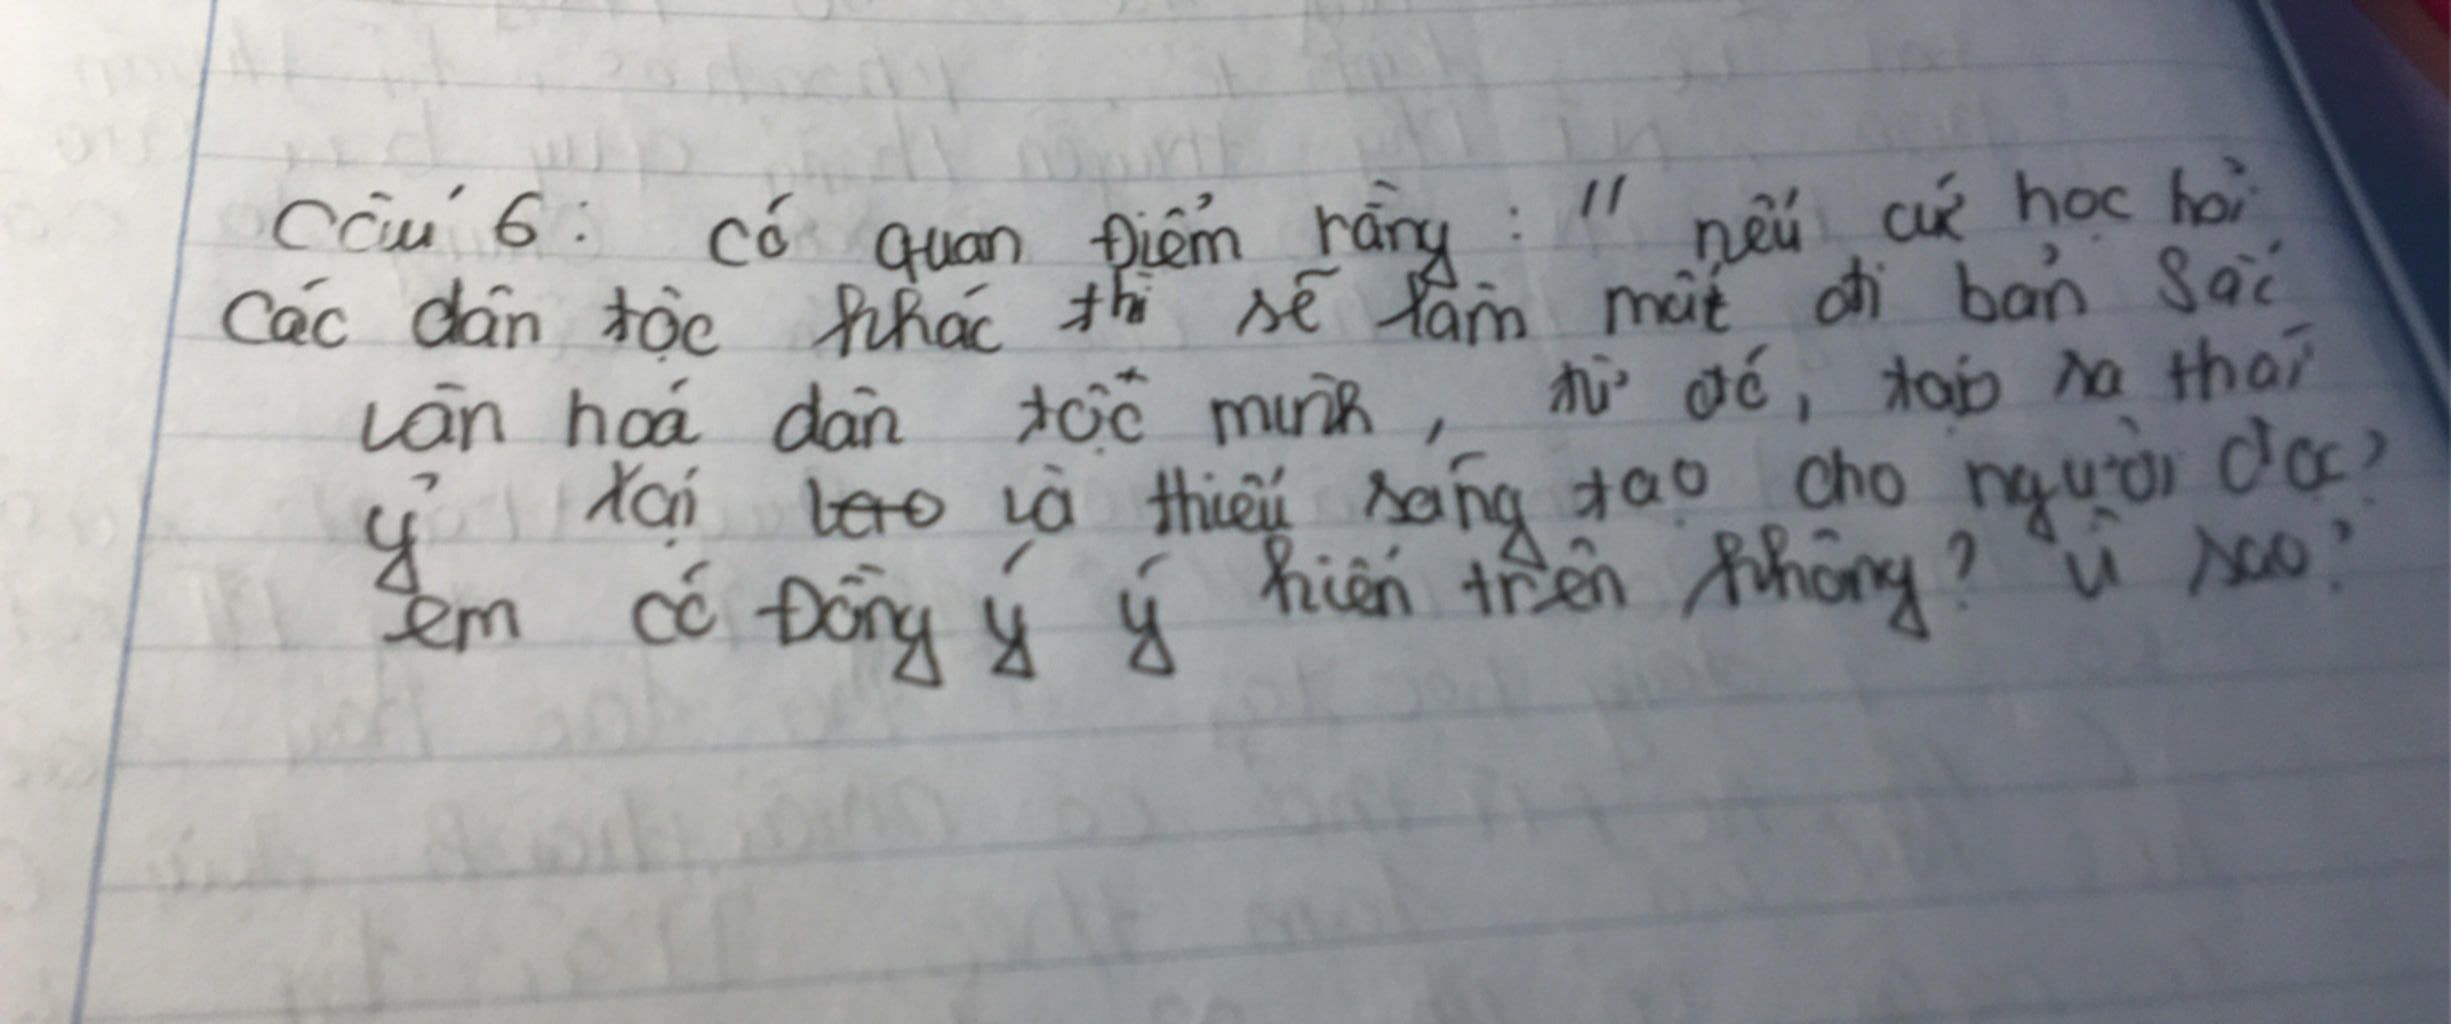 Câu 6: có quan điểm rằng: " nếu cứ học hỏi
các dân tộc khác thì sẽ làm mất đi bản sắc
văn hoá dân tộc mình, từ đó, tạo ra thái
ỷ lại và thiếu sáng tạo cho người đọc?
em có Đồng ý ý kiến trên không? vì sao?